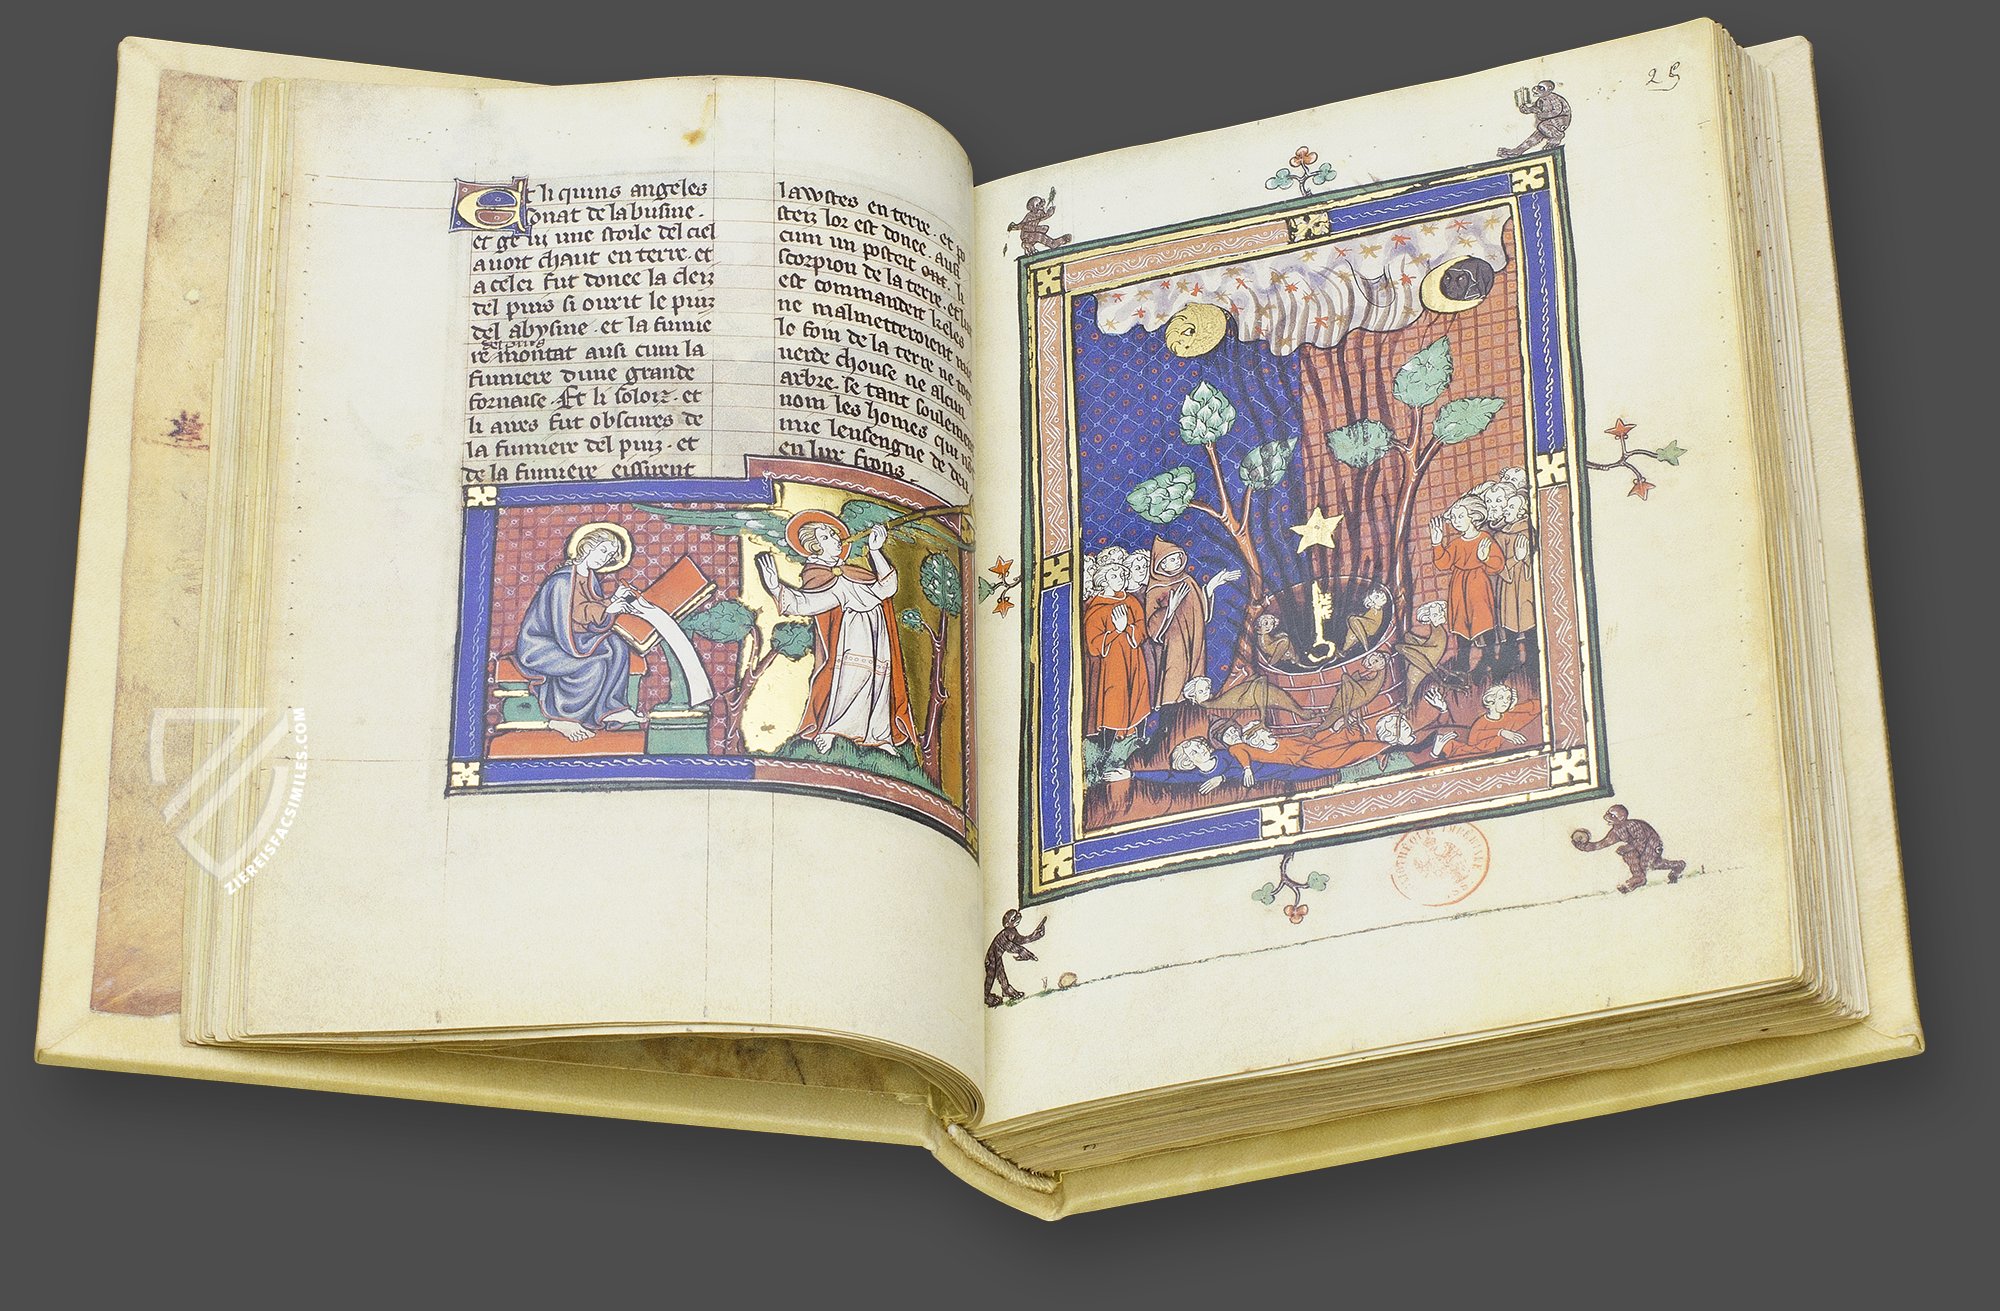 Et li quins angeles
sonat de la busine .
et ge vi une stoile del ciel
avoit chaut en terre . et
a celei fut donee la cleiz
del puis si ovrit le puiz
del abysme . et la fumie
del puis
re montat ausi cum la
fumiere dune grande
fornaise . Et li soloiz . et
li aires fut obscures de
la fumiere del puiz . et
de la fumiere eissirent
lawstes en terre . et po
steiz lor est donee . ausi
cum un posteit ont . li
scorpion de la terre . et
est commandeit keles
ne malmetteroient
le foin de la terre ne
verde chouse ne alcun
arbre . se tant soulement
nom les homes qui
mie lensengne de deu
en lur frons .
25
ZIEREISFACSIMILES.COM